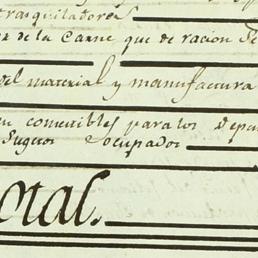 trasquiladores
de la Carne que de racion se
del material y manufactura
en comestibles para los Depen
Sugetos ocupados
otal.